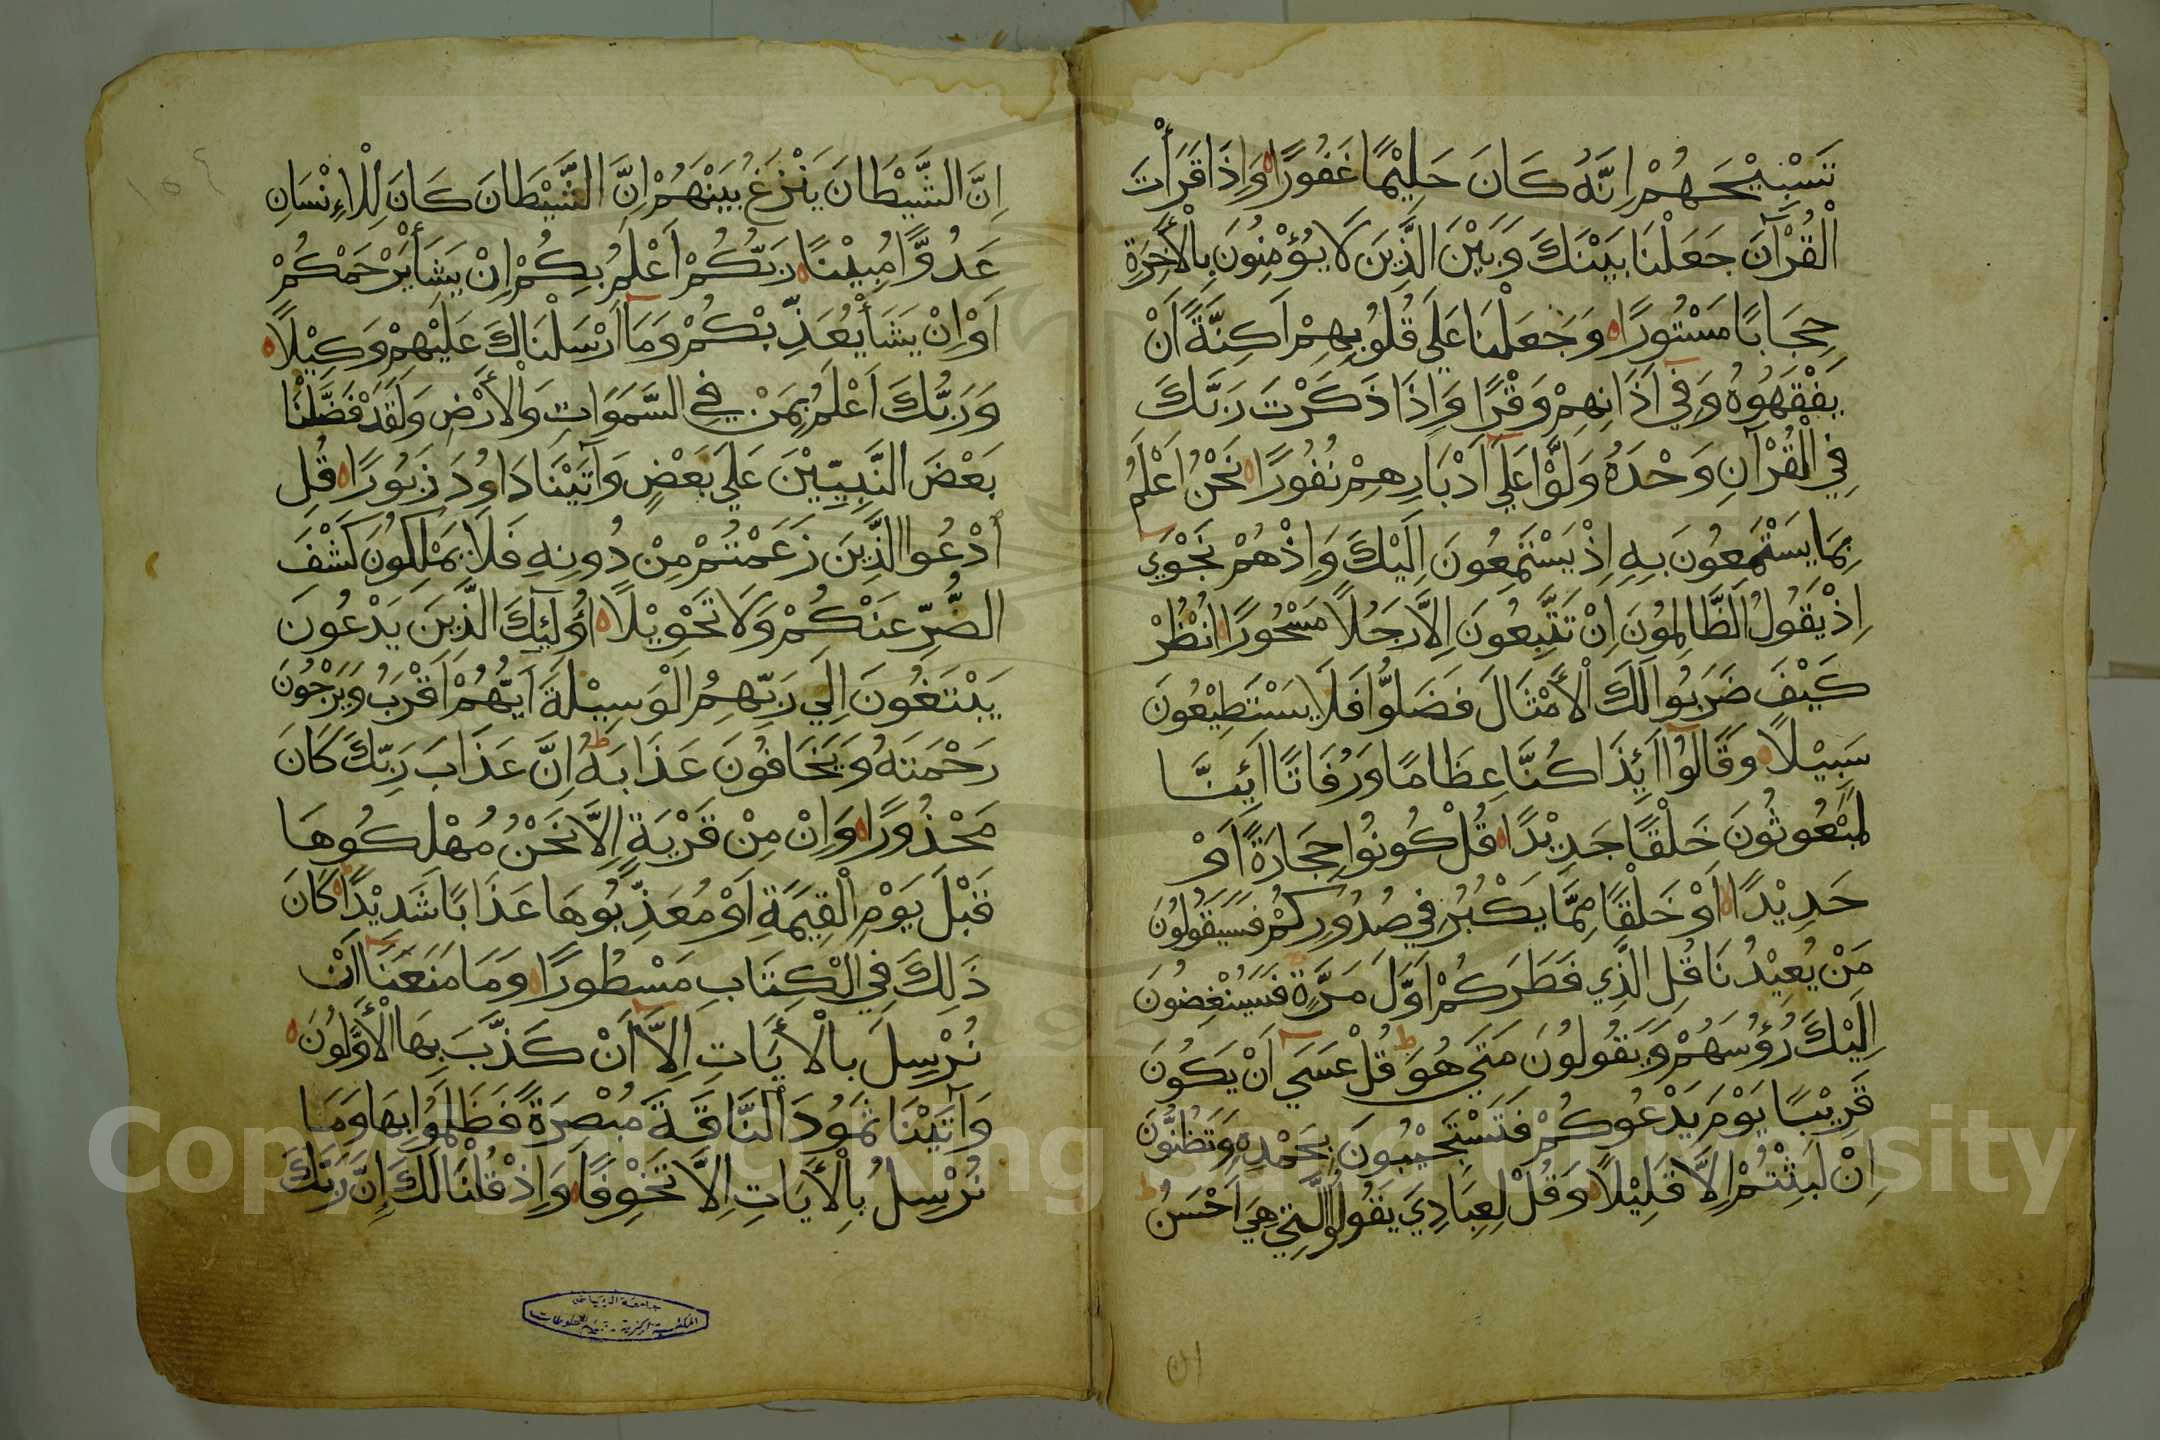 تَسْبِيْحَهُمْ اِنَّهُ كَانَ حَلِيْمًا غَفُورًا وَاِذَا قَرَأْتَ
الْقُرْآنَ جَعَلْنَا بَيْنَكَ وَبَيْنَ الَّذِيَن لَا يُؤْمِنُونَ بِالْأَخِرَةِ
حِجَابًا مَسْتُورًا وَجَعَلْنَا عَلَي قُلُوبِهِمْ اَكِنَّةً اَنْ
يَفْقَهُوهُ وَفِي اَذَانِهِمْ وَقْرًا وَاِذَا ذَكَرْتَ رَبَّكَ
فِي الْقُرْآنِ وَحْدَهُ وَلَّوْا عَلَي اَدْبَارِهِمْ نُفُورًا نَحْنُ اَعْلَمُ
بِمَا يَسْتَمِعُونَ بِهِ اِذْ يَسْتَمِعُونَ اِلَيْكَ وَاِذْ هُمْ نَجْوَي
اِذْ يَقُولُ الظَّالِمُونَ اِنْ تَتَّبِعُونَ اِلَّا رَجُلًا مَسْحُورًا اُنْظُرْ
كَيْفَ ضَرَبُوا لَكَ الْأَمْثَالَ فَضَلُّوا فَلَا يَسْتَطِيْعُونَ
سَبِيْلًا وَقَالُوا اَئِذَا كُنَّا عِظَامًا وَرُفَاتًا اَئِنَّا
لَمَبْعُوثُونَ خَلْقًا جَدِيْدًا قُلْ كُونُوا حِجَارَةً اَوْ
حَدِيْدًا اَوْ خَلْقًا مِمَّا يَكْبُرُ فِي صُدُورِكُمْ فَسَيَقُولُونَ
مَنْ يُعِيْدُنَا قُلِ الَّذِي فَطَرَكُمْ اَوَّلَ مَرَّةٍ فَسَيُنْغِضُونَ
اِلَيْكَ رُؤُسَهُمْ وَيَقُولُونَ مَتَي هُوَ قُلْ عَسَي اَنْ يَكُونَ
قَرِيْبًا يَوْمَ يَدْعُوكُمْ فَتَسْتَجِيْبُونَ بِحَمْدِهِ وَتَظُنُّونَ
اِنْ لَبِثْتُمْ اِلَّا قَلِيْلًا وَقُلْ لِعِبَادِيَ يَقُولُوا الَّتِي هِيَ اَحْسَنُ
ان
اِنَّ الشَّيْطَانَ يَنْزَغُ بَيْنَهُمْ اِنَّ الشَّيْطَانَ كَانَ لِلْاِنْسَانِ
عَدُوًّا مُبِيْنًا رَبُّكُمْ اَعْلَمُ بِكُمْ اِنْ يَشَأْ يَرْحَمْكُمْ
اَوْ اِنْ يَشَأْ يُعَذِّبْكُمْ وَمَا اَرْسَلْنَاكَ عَلَيْهِمْ وَكِيْلًا
وَرَبُّكَ اَعْلَمُ بِمَنْ فِي السَّمَوَاتِ وَالْأَرْضِ وَلَقَدْ فَضَّلْنَا
بَعْضَ النَّبِيّيْنَ عَلَي بَعْضٍ وَآتَيْنَا دَاوُدَ زَبُورًا قُلِ
ادْعُوا الَّذِيَن زَعَمْتُمْ مِنْ دُونِهِ فَلَا يَمْلِكُونَ كَشْفَ
الضُّرِّ عَنْكُمْ وَلَا تَحْوِيْلًا اُولَئِكَ الَّذِيَن يَدْعُونَ
يَبْتَغُونَ اِلَي رَبِّهِمُ الْوَسِيْلَةَ اَيُّهُمْ اَقْرَبُ وَيَرْجُونَ
رَحْمَتَهُ وَيَخَافُونَ عَذَابَهُ اِنَّ عَذَابَ رَبِّكَ كَانَ
مَحْذُورًا وَاِنْ مِنْ قَرْيَةٍ اِلَّا نَحْنُ مُهْلِكُوهَا
قَبْلَ يَوْمِ الْقِيَمَةِ اَوْ مُعَذِّبُوهَا عَذَابًا شَدِيْدًا كَانَ
ذَلِكَ فِي الْكِتَابِ مَسْطُورًا وَمَا مَنَعَنَا اَنْ
نُرْسِلَ بِالْأَيَاتِ اِلَّا اَنْ كَذَّبَ بِهَا الْأَوَّلُونَ
وَآتَيْنَا ثَمُودَ النَّاقَةَ مُبْصِرَةً فَظَلَمُوا بِهَا وَمَا
نُرْسِلُ بِالْأَيَاتِ اِلَّا تَخْوِفًا وَاِذْ قُلْنَا لَكَ اِنَّ رَبَّكَ
جامعة الرياض
المكتبة المركزية - قسم المخطوطات
Copyright © King Saud University